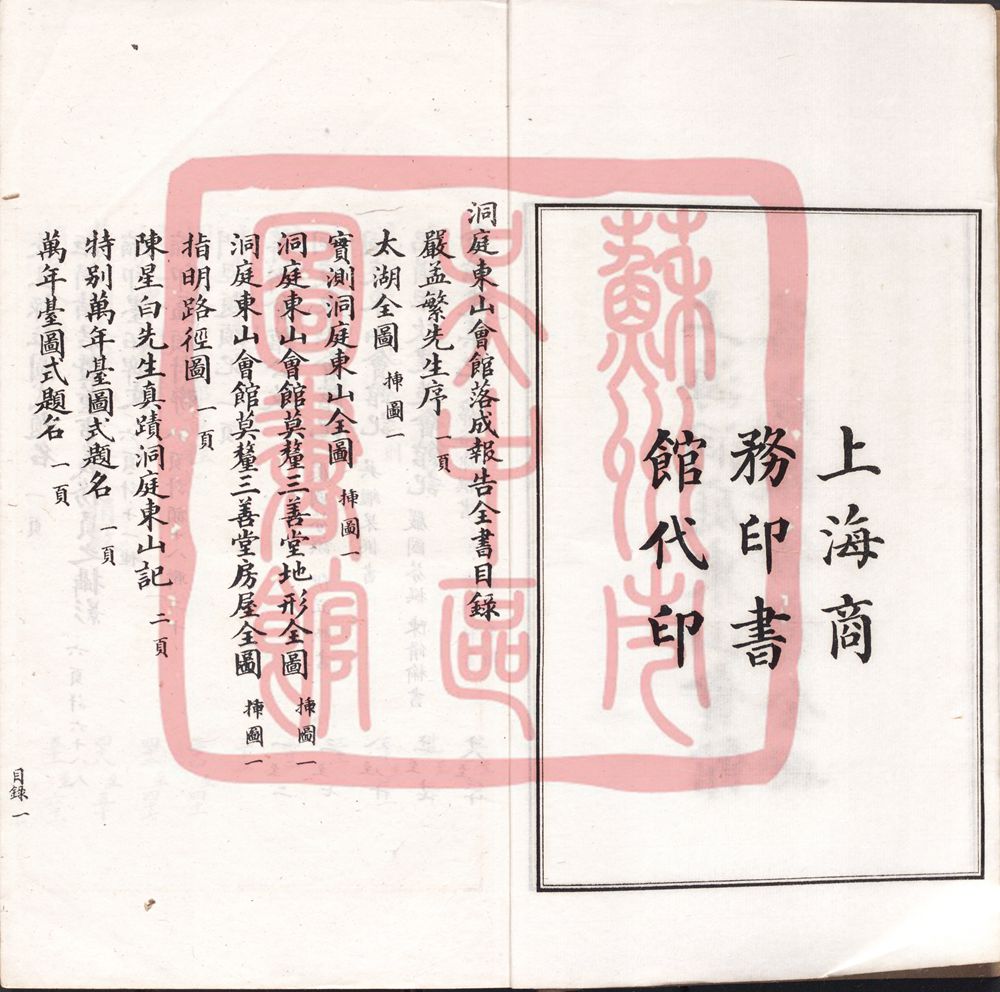 上海商
務印書
館代印
洞庭東山會館落成報告全書目錄
嚴孟繁先生序 一頁
太湖全圖 揷圖一
實測洞庭東山全圖 揷圖一
洞庭東山會館莫釐三善堂地形全圖 揷圖一
洞庭東山會館莫釐三善堂房屋全圖 揷圖一
指明路徑圖 一頁
陳星白先生真蹟洞庭東山記 二頁
特別萬年臺圖式題名 一頁
萬年臺圖式題名 一頁
目錄 一
蘇州市
吳中區
圖書館